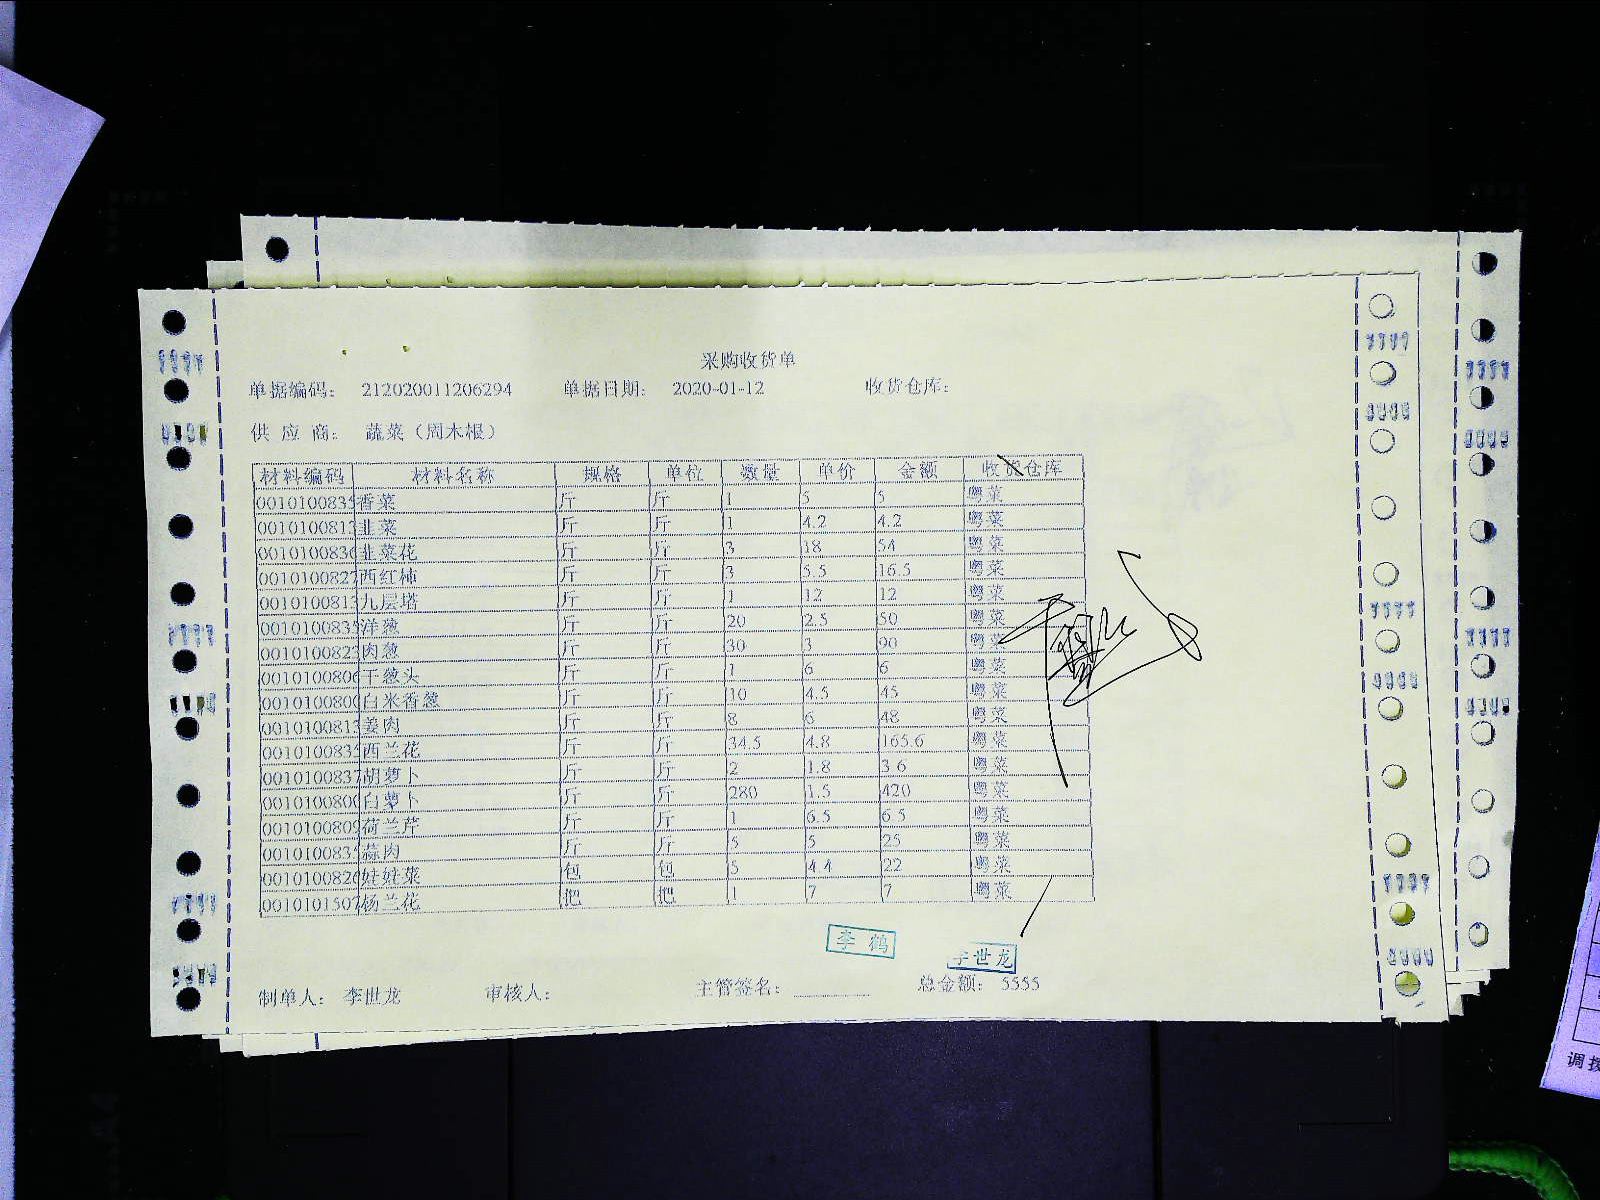 采购收货单
单据编码： 212020011206294 单据日期： 2020-01-12 收货仓库：
供 应 商： 蔬菜（周木根）
材料编码 材料名称 规格 单位 数量 单价 金额 收货仓库
0010100835 香菜 斤 斤 1 5 5 粤菜
0010100813 韭菜 斤 斤 1 4.2 4.2 粤菜
0010100836 韭菜花 斤 斤 3 18 54 粤菜
0010100827 西红柿 斤 斤 3 5.5 16.5 粤菜
0010100813 九层塔 斤 斤 1 12 12 粤菜
0010100835 洋葱 斤 斤 20 2.5 50 粤菜
0010100823 肉葱 斤 斤 30 3 90 粤菜
0010100806 干葱头 斤 斤 1 6 6 粤菜
0010100800 白米香葱 斤 斤 10 4.5 45 粤菜
0010100813 姜肉 斤 斤 8 6 48 粤菜
0010100835 西兰花 斤 斤 34.5 4.8 165.6 粤菜
0010100837 胡萝卜 斤 斤 2 1.8 3.6 粤菜
0010100800 白萝卜 斤 斤 280 1.5 420 粤菜
0010100809 荷兰芹 斤 斤 1 6.5 6.5 粤菜
0010100835 蒜肉 斤 斤 5 5 25 粤菜
0010100826 娃娃菜 包 包 5 4.4 22 粤菜
0010101507 杨兰花 把 把 1 7 7 粤菜
李 鹤
李世龙
制单人： 李世龙 审核人： 主管签名： 总金额： 5555
调拨